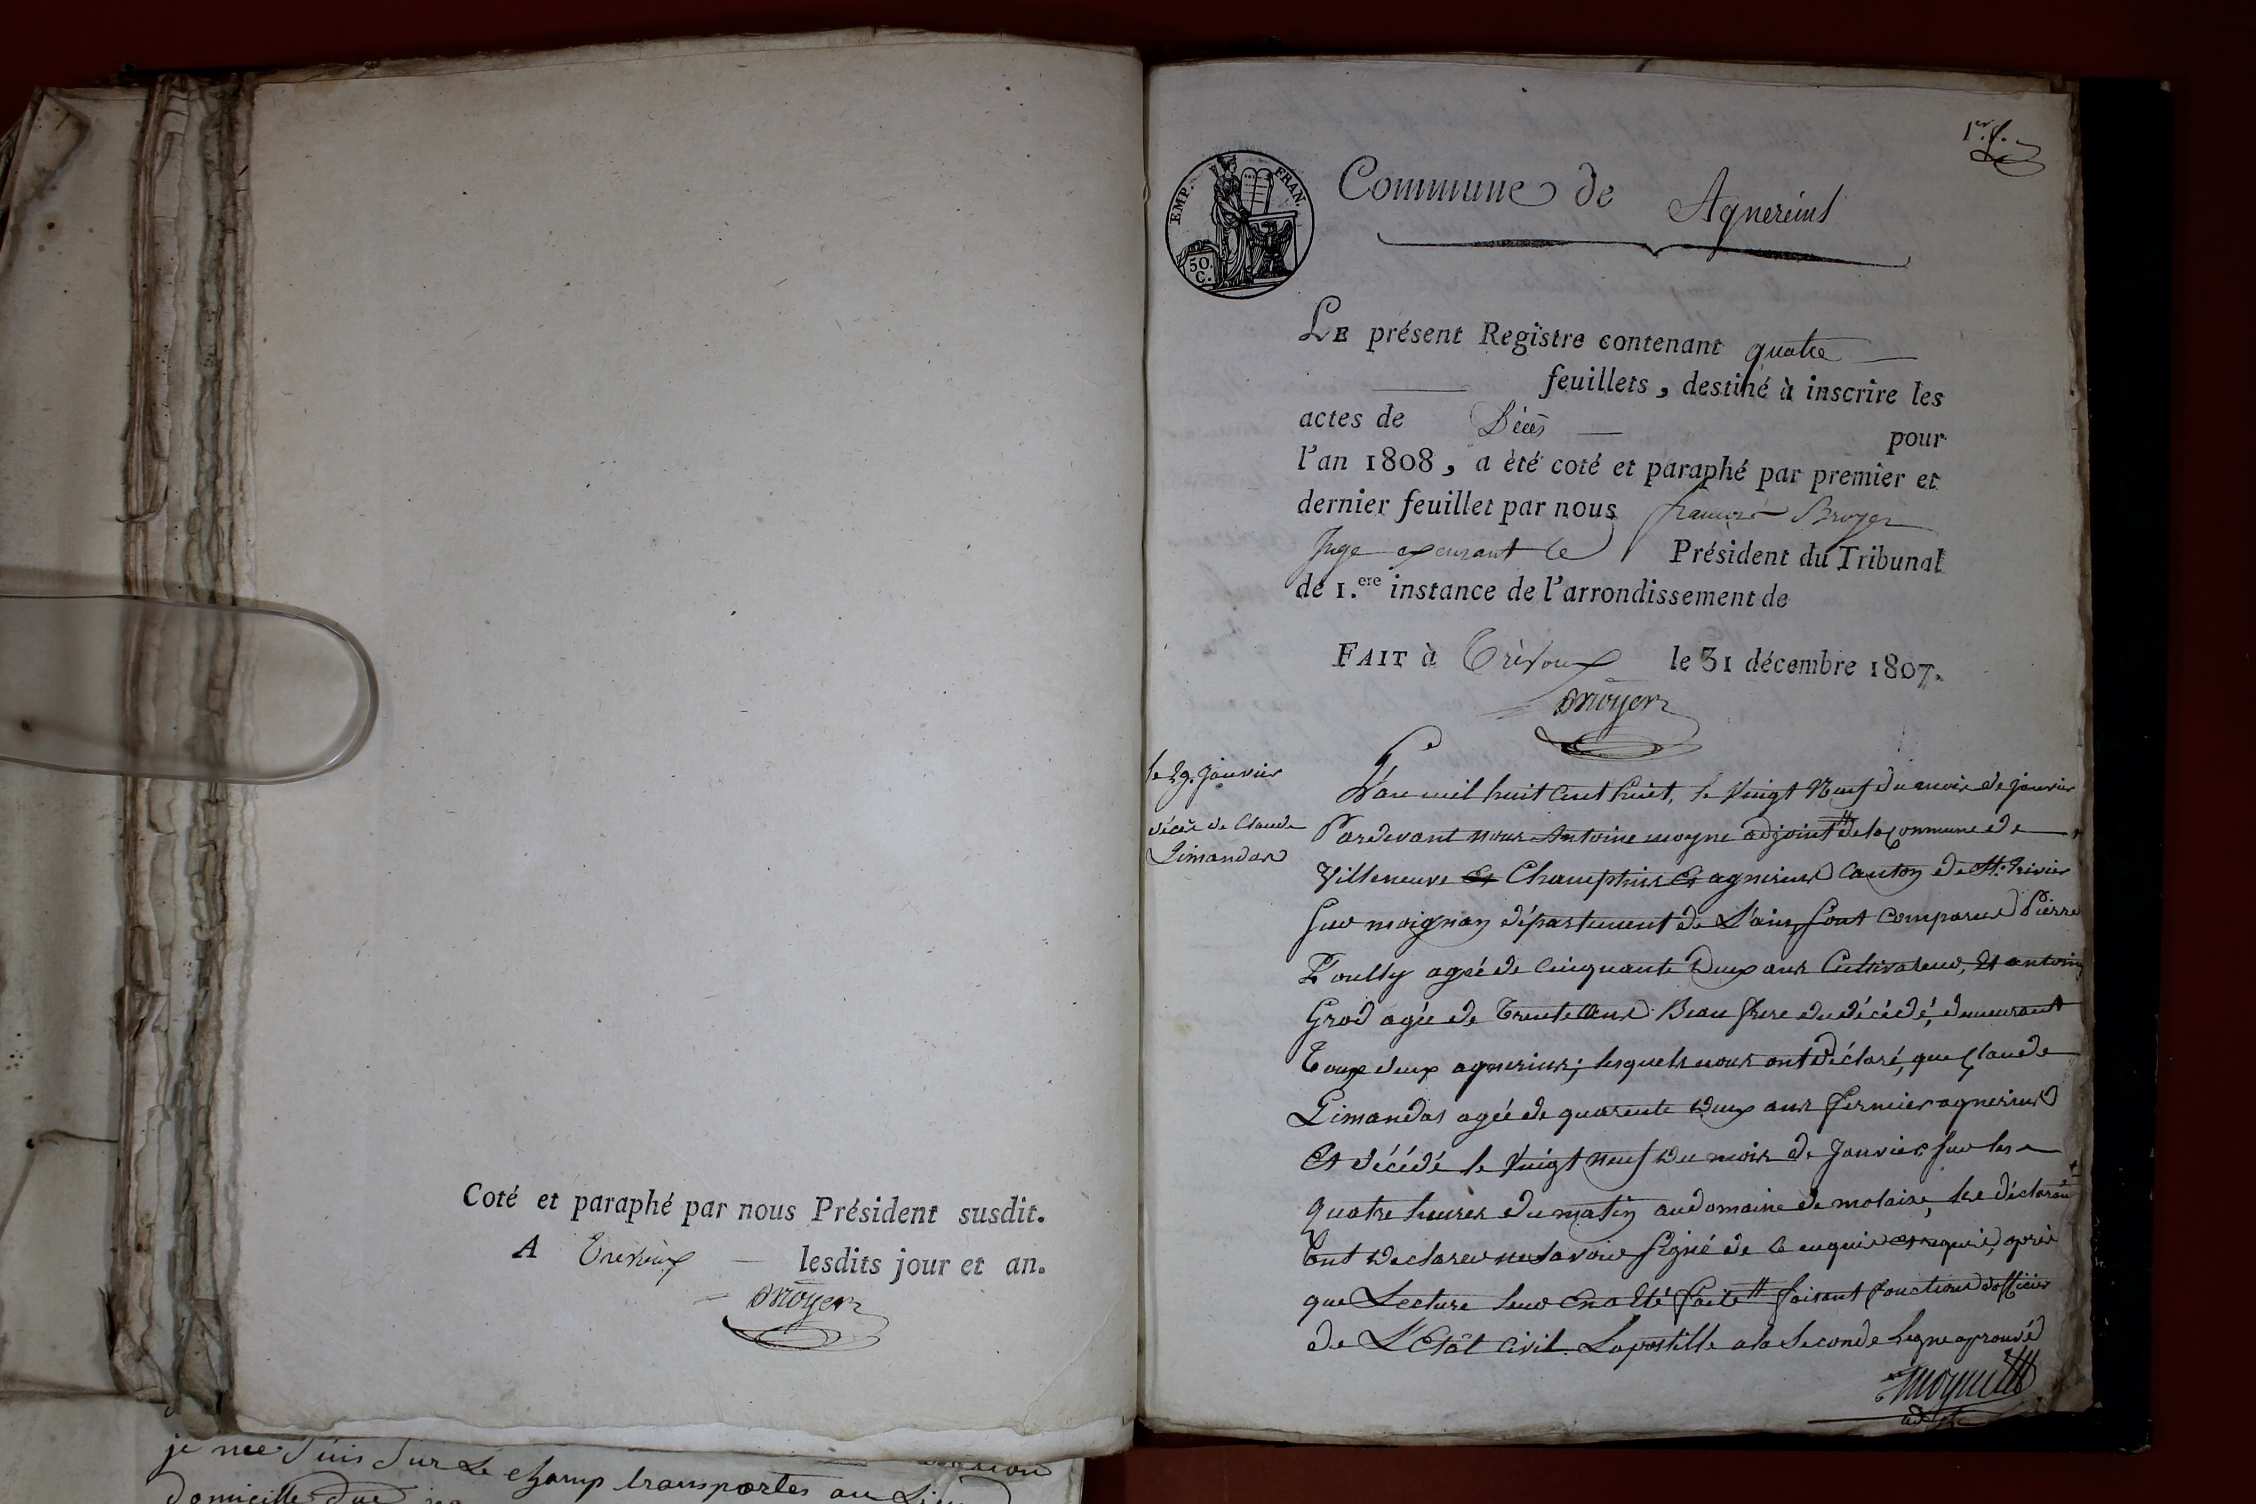 Coté et paraphé par nous Président susdit.
A Trevoux lesdits jour et an.
Broyer
je me suis sur le champ transportes au
domicille
1er. f.
EMP. FRAN.
50. C.
Commune de Agnereins
LE présent Registre contenant quatre
feuillets, destiné à inscrire les
actes de Décès pour
l'an 1808, a èté coté et paraphé par premier et
dernier feuillet par nous francois Broyer
Juge exerçant le Président du Tribunal
de 1.ere instance de l'arrondissement de
FAIT à Trévoux le 31 décembre 1807.
Broyer
le 29. Janvier
décès de Claude
Limandas
L'an mil huit cent huit, le Vingt Neuf du mois de Janvier
Pardevant nous Antoine moyne adjoint # de la Commune de
Villeneuve et Champteins et agnereins Canton de St. trivier
sur moignan département de L'ain, sont comparus Pierre
agée de cinquante deux ans Cultivateur, Et antoine
Grod agée de trente ans Beau frere du décédé, demeurant
Toux deux agnereins; lesquels nous ont déclaré, que Claude
Limandas agée de quarente deux ans fermier agnereins
Et décédé le Vingt neuf du mois de Janvier sur les
quatre heures du matin au domaine de molaire, les déclarant
ont declarer ne savoir signé de ce enquis et requis, après
que Lecture leur en a Eté faite # faisant fonctions d'officier
de L'Etât Civil. Lapostille a la Seconde Ligne aprouvé
moyne
adjt